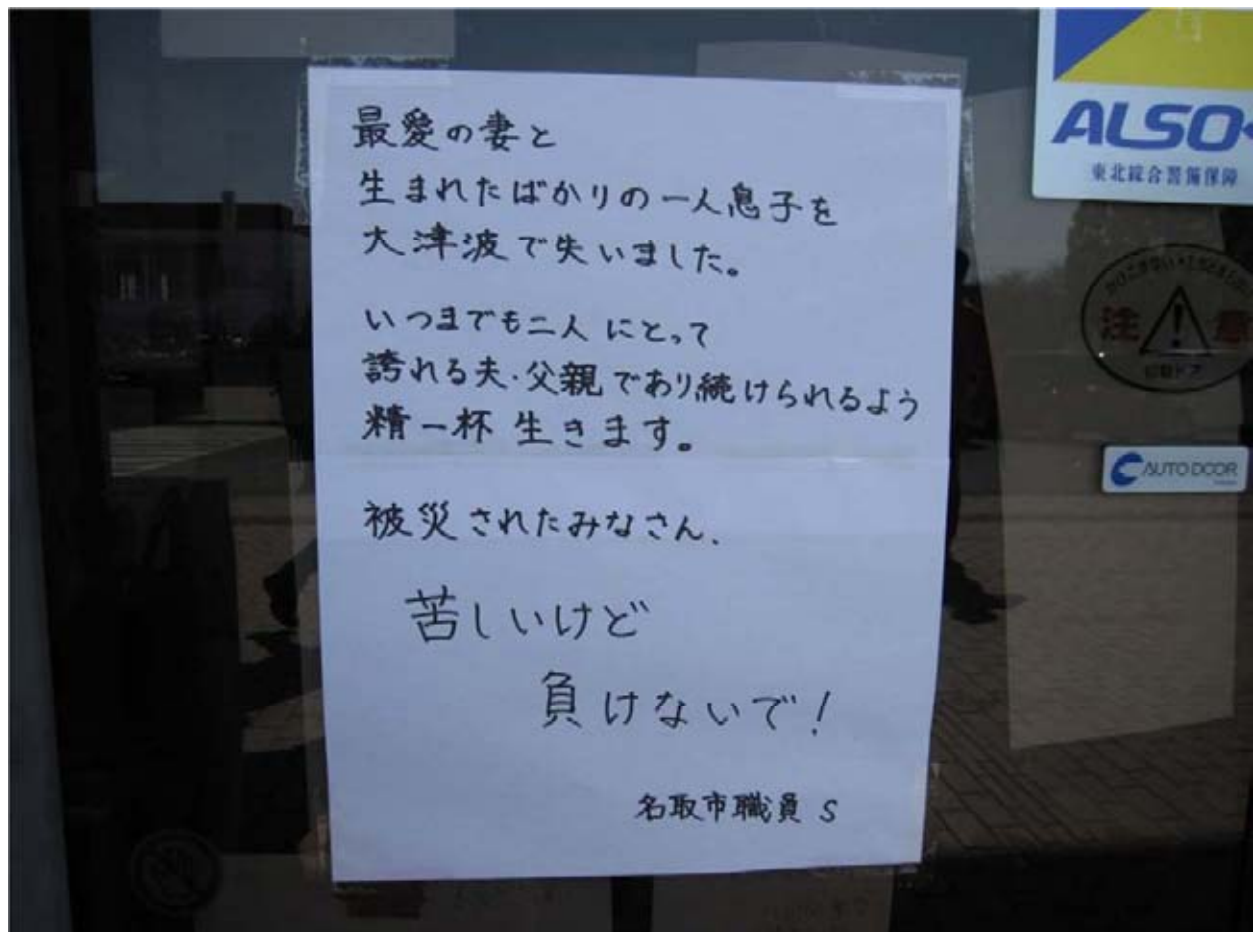 最愛の妻と
生まれたばかりの一人息子を
大津波で失いました。
いつまでも二人にとって
誇れる夫・父親であり続けられるよう
精一杯生きます。
被災されたみなさん、
苦しいけど
負けないで!
名取市職員 S
ALSO
東北綜合警備保障
注意
自動ドア
AUTO DOOR